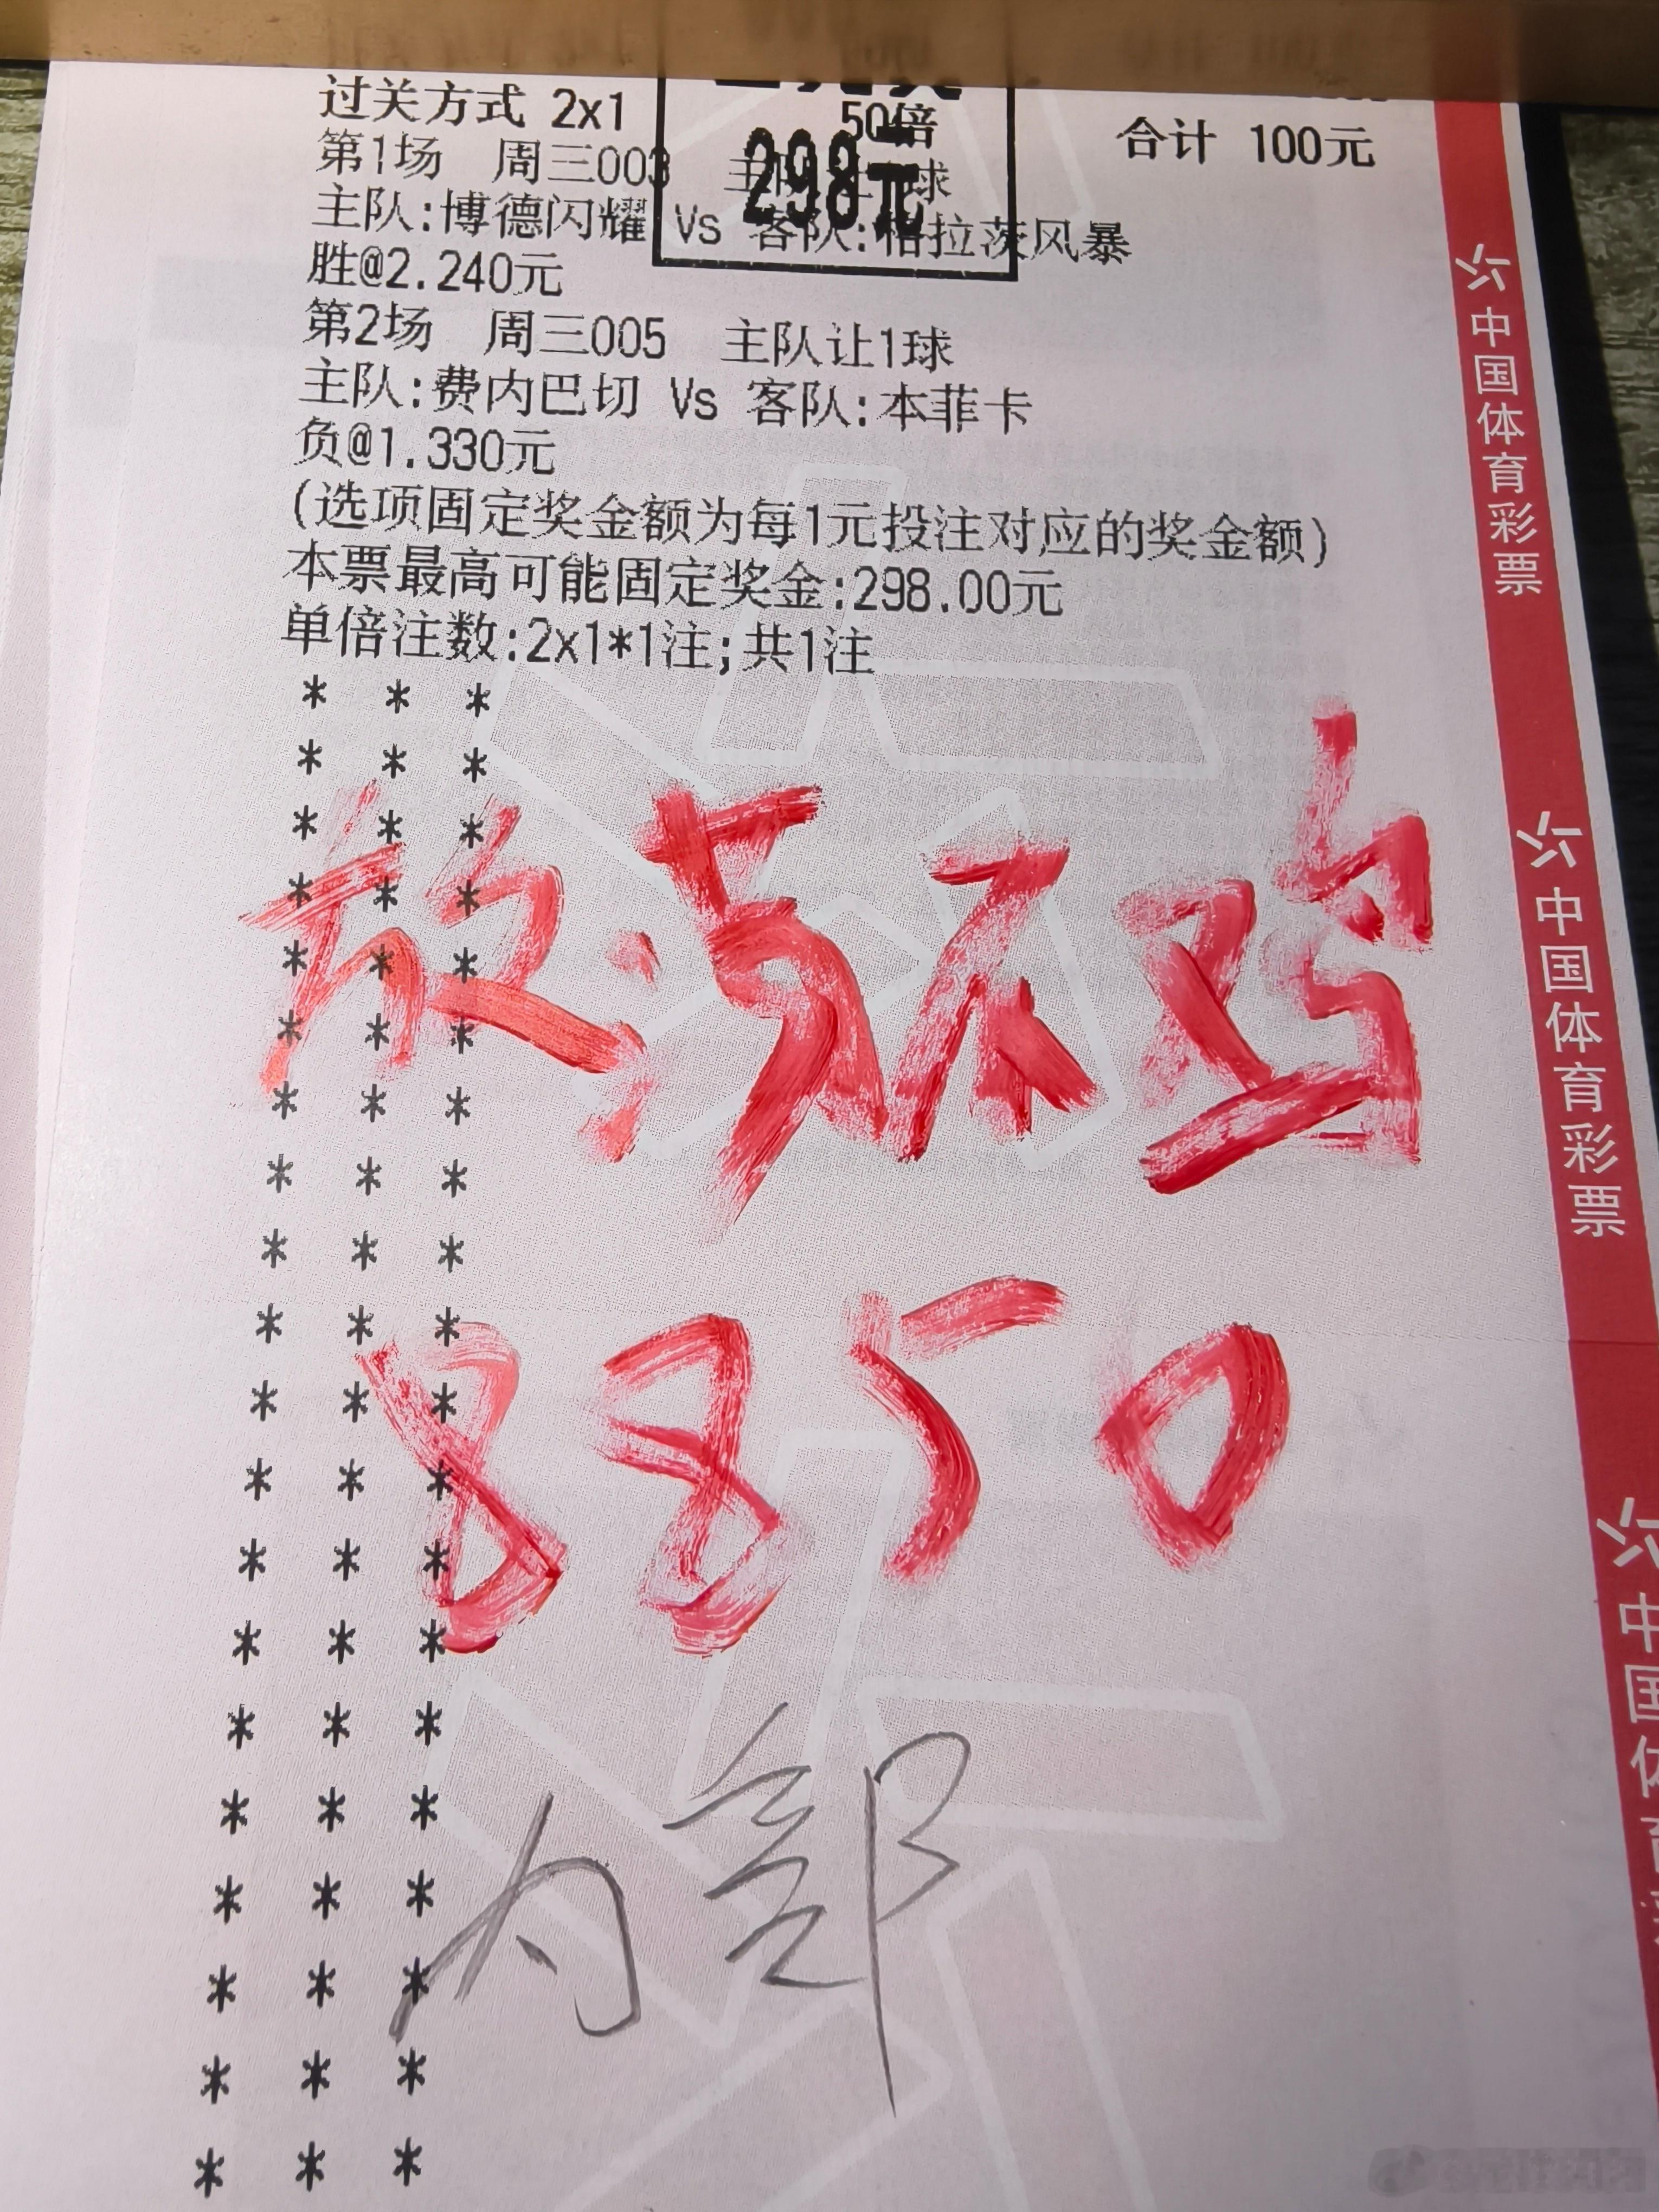 过关方式 2x1 50倍 合计 100元
298元
第1场 周三003 主队 球
主队:博德闪耀 Vs 客队:格拉茨风暴
胜@2.240元
第2场 周三005 主队让1球
主队:费内巴切 Vs 客队:本菲卡
负@1.330元
(选项固定奖金额为每1元投注对应的奖金额)
本票最高可能固定奖金:298.00元
单倍注数:2x1*1注;共1注
* * *
* * *
* * *
* * *
* * *
* * *
* * *
* * *
* * *
* * *
* * *
* * *
* * *
* * *
* * *
* * *
* * *
* * *
* * *
* * *
8850
内部
中国体育彩票
中国体育彩票
中国体育